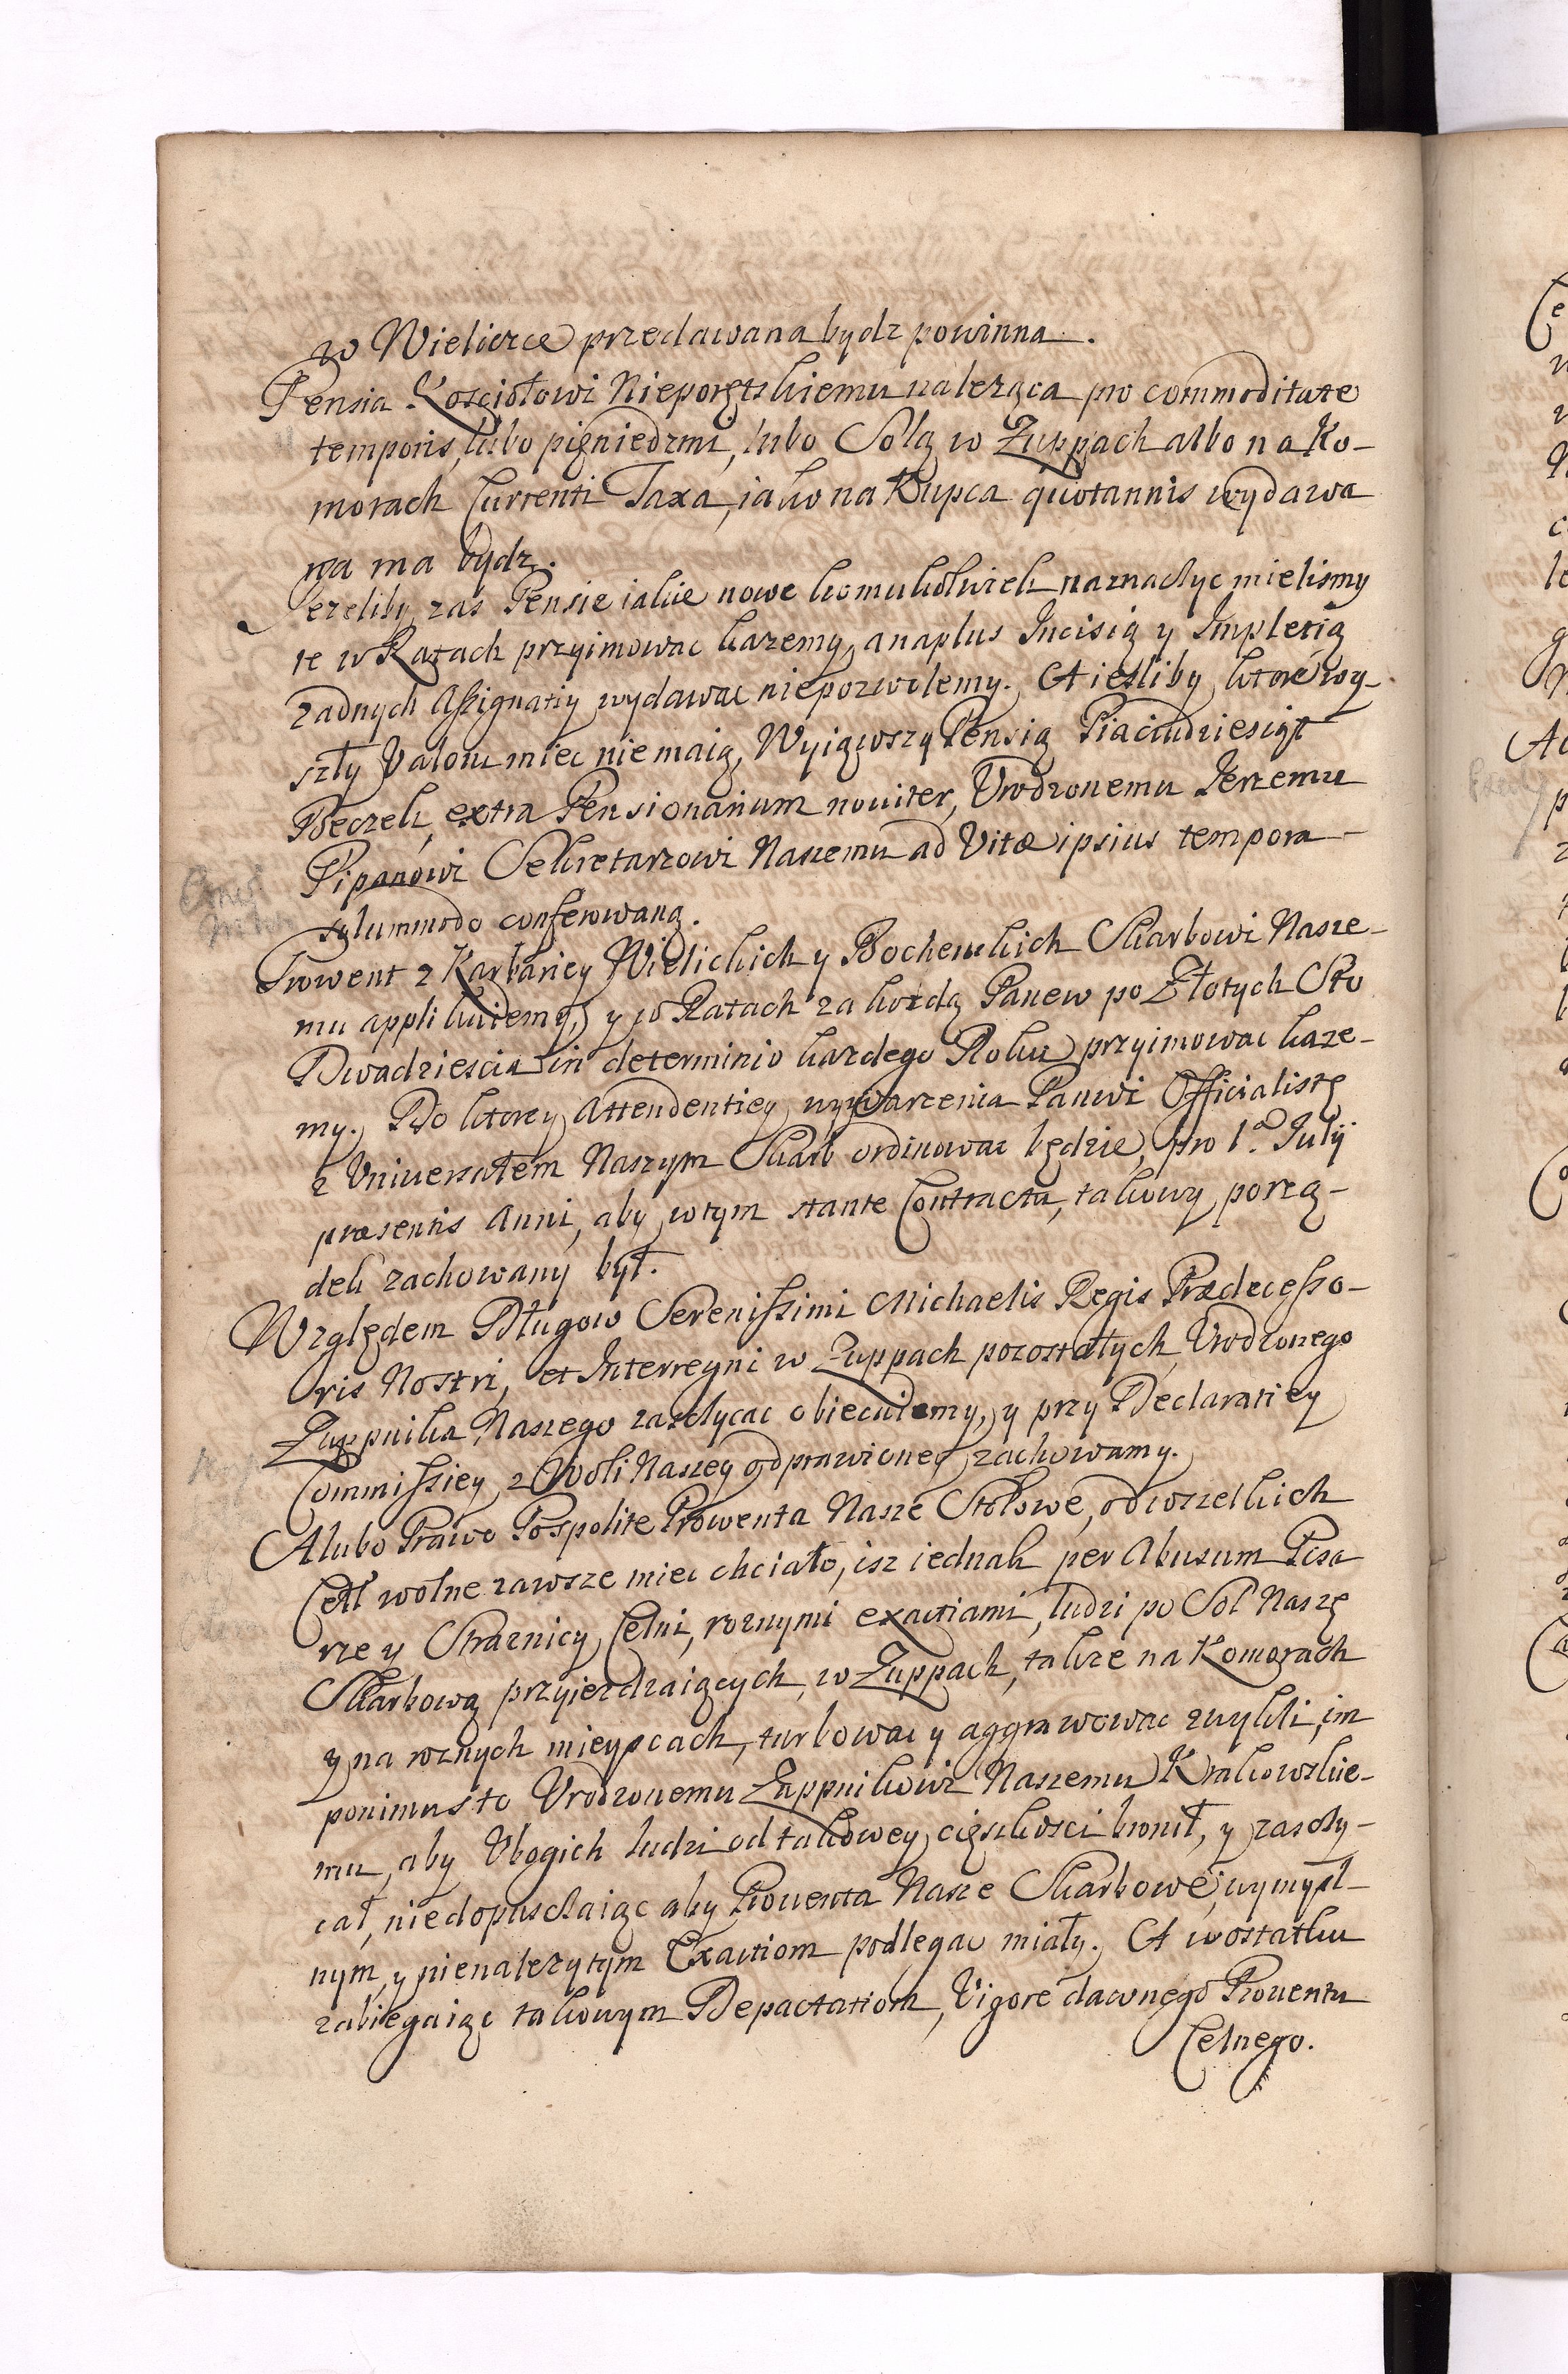 w Wieliczce przedawana bydz powinna.
Pensia Kosciołowi Nieporętskiemu należąca pro commoditate
temporis, lubo pięniedzmi, lubo Solą w Zuppach albo na Ko-
morach Currenti Taxa, iako na Kupca quotannis wydawa
na ma bydz.
Jezeliby zas Pensie iakie nowe komukolwiek naznaczyc mielismy
te w Ratach przyimowac każemy, a naplus Incisią y Impletią
żadnych Assignatiy wydawac niepozwolemy. A iesliby ktore wy-
szły Valoru miec nie maią, Wyiąwszy Pensią Piącidziesiąt
Beczek, extra Pensionarium noviter, Urodzonemu Jerzemu
Pipanowi Sekretarzowi Naszemu ad Vitæ ipsius tempora
solummodo conferowaną.
Prowent z Karbariey Wielickich y Bochenskich Skarbowi Nasze-
mu applikuiemy, y w Ratach za każdą Panew po Złotych Sto
Dwadziescia in determinio każdego Roku przyimowac każe-
my. Do ktorey Attendentiey wywarzenia Panwi Officialistę
z Uniuersałem Naszym Skarb ordinowac będzie, pro 1.a Julij
præsentis Anni, aby w tym stante Contractu, takowy porzą-
dek zachowany był.
Względem Długow Serenissimi Michaelis Regis Prædecesso-
ris Nostri, et Interregni w Zuppach pozostałych, Urodzonego
Zuppnika Naszego zasczycac obiecuiemy, y przy Declaratiey
Commissiey z Woli Naszey odprawioney zachowamy.
A lubo Prawo Pospolite Prowenta Nasze Stołowe, od wszelkich
Ceł wolne zawsze miec chciało, isz iednak per Abusum Pisa
rze y Straznicy Celni, roznymi exactiami, ludzi po Sol Naszę
Skarbową przyiezdzaiących, w Zuppach, także na Komorach
y na roznych mieyscach, turbowac y aggrawowac zwykli, im
ponimus to Urodzonemu Zuppnikowi Naszemu Krakowskie-
mu, aby Ubogich ludzi od takowey cięszkosci bronił, y zasczy-
cał, niedopusczaiąc aby Prouenta Nasze Skarbowe, wymysl-
nym, y nienależytym Exactiom podlegac miały. A w ostatku
zabiegaiąc takowym Depactatiom, Vigore dawnego Prouentu
Celnego.